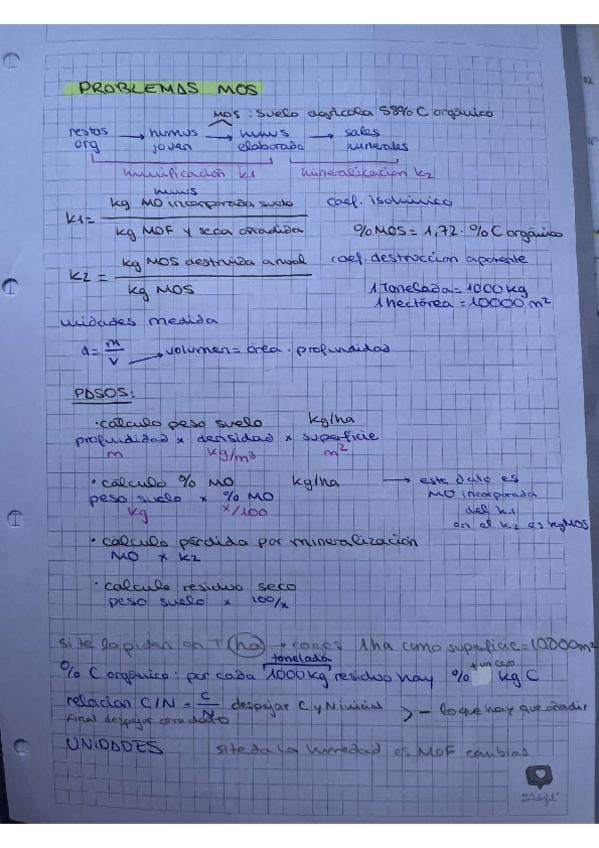 PROBLEMAS MOS
MOS : suelo agrícola 58% C orgánico
restos org → humus joven → humus elaborado → sales minerales
humificación k1 mineralización k2
k1 = kg humus MO incorporada suelo / kg MOF y seca añadida coef. isohúmico
%MOS = 1,72 · % C orgánico
k2 = kg MOS destruida anual / kg MOS coef. destrucción aparente
1 Tonelada = 1000 kg
1 hectárea = 10000 m²
unidades medida
d = m/v → volumen = área · profundidad
PASOS:
· cálculo peso suelo kg/ha
profundidad x densidad x superficie
m kg/m³ m²
· cálculo % MO kg/ha → este dato es
peso suelo x % MO MO incorporada
kg x/100 del k1
en el k2 es kgMOS
· cálculo pérdida por mineralización
MO x k2
· calculo residuo seco
peso suelo x 100/x
si te lo piden en T (ha) → coges 1ha como superficie = 10000m²
tonelada
% C orgánico : por cada 1000 kg residuo hay % kg C
relación C/N = C/N despejar C y N inicial > - lo que hay que añadir
final despejar otro dato
UNIDADES si te da la humedad es MOF cambias